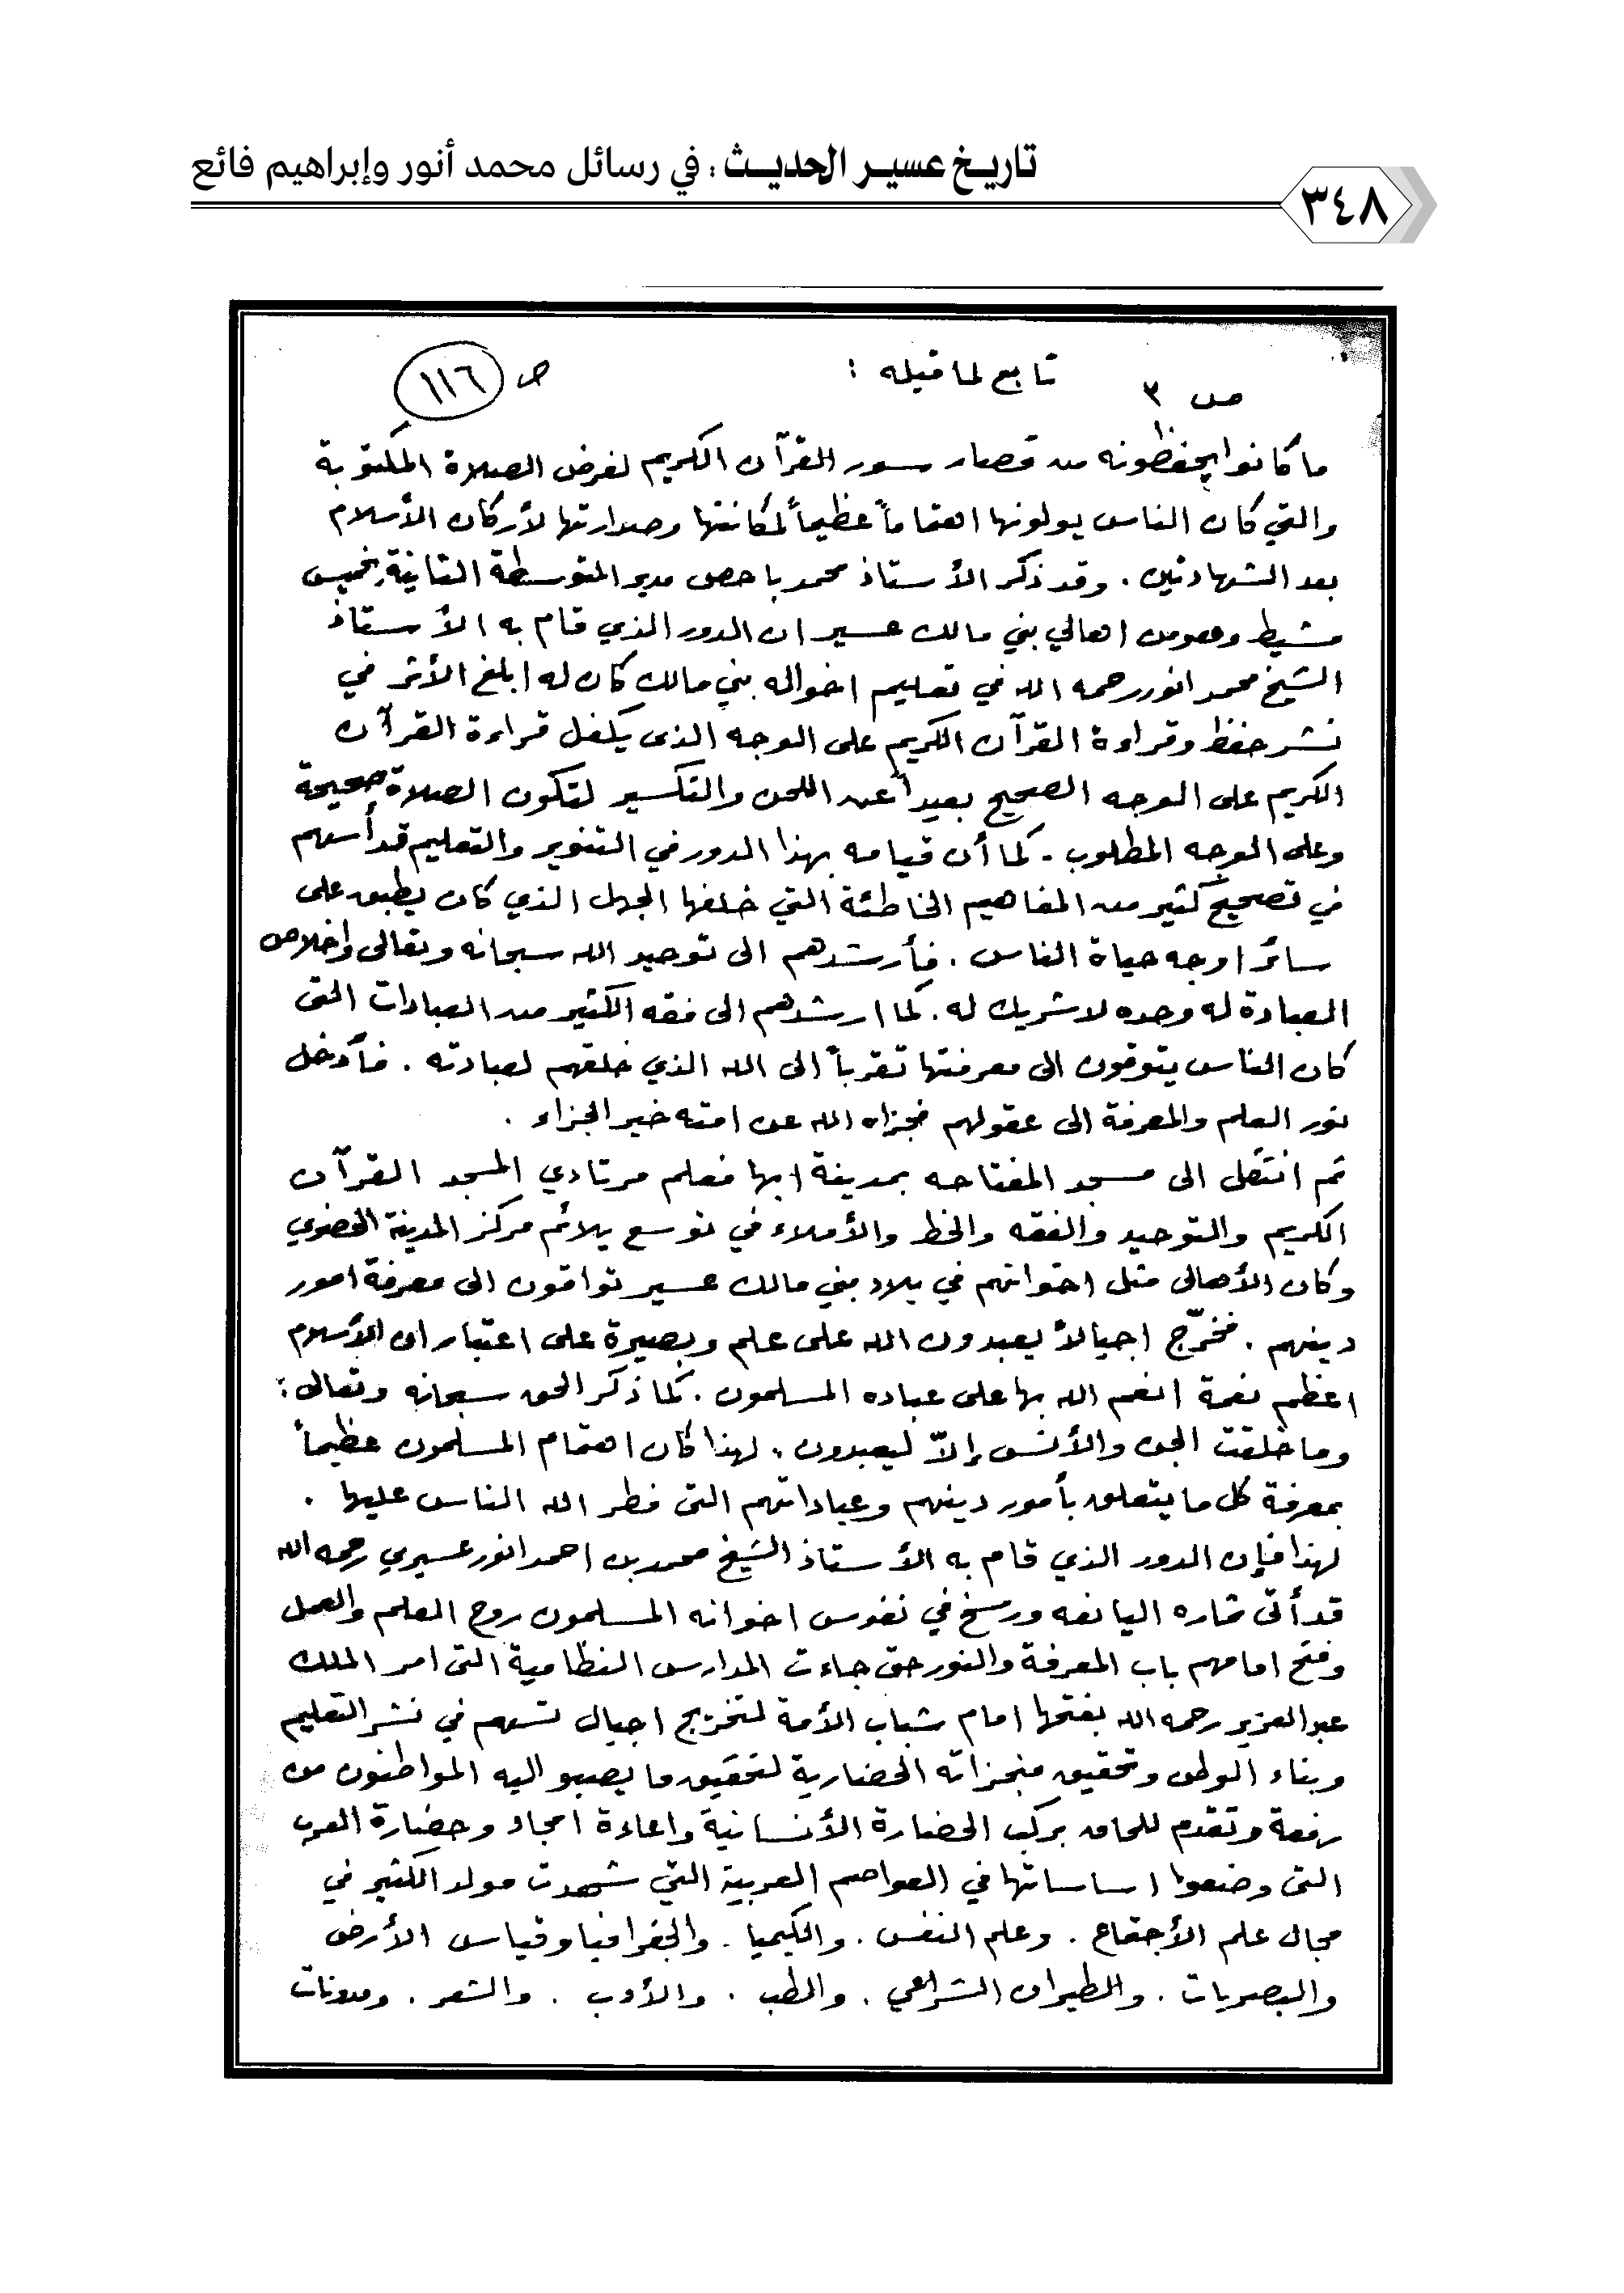 تاريخ عسير الحديث : في رسائل محمد أنور وإبراهيم فائع
٣٤٨
ص ٣ تابع لما قبله : ص ١١٦
ما كانوا يحفظونه من قصار سور القرآن الكريم لفرض الصلاة المكتوبة
والتي كان الناس يولونها اهتماماً عظيماً لمكانتها وصدارتها لأركان الأسلام
بعد الشهادتين . وقد ذكر الأستاذ محمد باحص مدير المتوسطة الثانية بخميس
مشيط وهو من اهالي بني مالك عسير ان الدور الذي قام به الأستاذ
الشيخ محمد انور رحمه الله في تعليم اخواله بني مالك كان له ابلغ الأثر في
نشر حفظ وقراءة القرآن الكريم على الوجه الذي يكفل قراءة القرآن
الكريم على الوجه الصحيح بعيداً عن اللحن والتكسير لتكون الصلاة صحيحة
وعلى الوجه المطلوب . كما أن قيامه بهذا الدور في التنوير والتعليم قد أسهم
في تصحيح كثير من المفاهيم الخاطئة التي خلفها الجهل الذي كان يطبق على
سائر اوجه حياة الناس . فأرشدهم الى توحيد الله سبحانه وتعالى واخلاص
العبادة له وحده لا شريك له . كما ارشدهم الى فقه الكثير من العبادات التي
كان الناس يتوقون الى معرفتها تقرباً الى الله الذي خلقهم لعبادته . فأدخل
نور العلم والمعرفة الى عقولهم فجزاه الله عن امته خير الجزاء .
ثم انتقل الى مسجد المفتاحه بمدينة ابها فعلم مرتادي المسجد القرآن
الكريم والتوحيد والفقه والخط والأملاء في توسع يلائم مركز المدينة الحضوي
وكان الأهالي مثل اخوانهم في بلاد بني مالك عسير تواقون الى معرفة امور
دينهم . فخرّج اجيالاً يعبدون الله على علم وبصيرة على اعتبار ان الأسلام
اعظم نعمة انعم الله بها على عباده المسلمون . كما ذكر الحق سبحانه وتعالى :
وما خلقت الجن والأنس إلاّ ليعبدون . لهذا كان اهتمام المسلمون عظيماً
بمعرفة كل ما يتعلق بأمور دينهم وعباداتهم التي فطر الله الناس عليها .
لهذا فإن الدور الذي قام به الأستاذ الشيخ محمد بن احمد انور عسيري رحمه الله
قد أتى ثماره اليانعه ورسخ في نفوس اخوانه المسلمون روح العلم والعمل
وفتح امامهم باب المعرفة والنور حتى جاءت المدارس النظامية التي امر الملك
عبدالعزيز رحمه الله بفتحها امام شباب الأمة لتخريج اجيال تسهم في نشر التعليم
وبناء الوطن وتحقيق منجزاته الحضارية لتحقيق ما يصبو اليه المواطنون من
رفعة وتقدم للحاق بركب الحضارة الأنسانية واعادة امجاد وحضارة العرب
التي وضعوا اساساتها في العواصم العربية التي شهدت مولد الكثير في
مجال علم الأجتماع . وعلم النفس . والكيميا . والجغرافيا وقياس الأرض
والبصريات . والطيران الشراعي . والطب . والأدب . والشعر . ومدونات